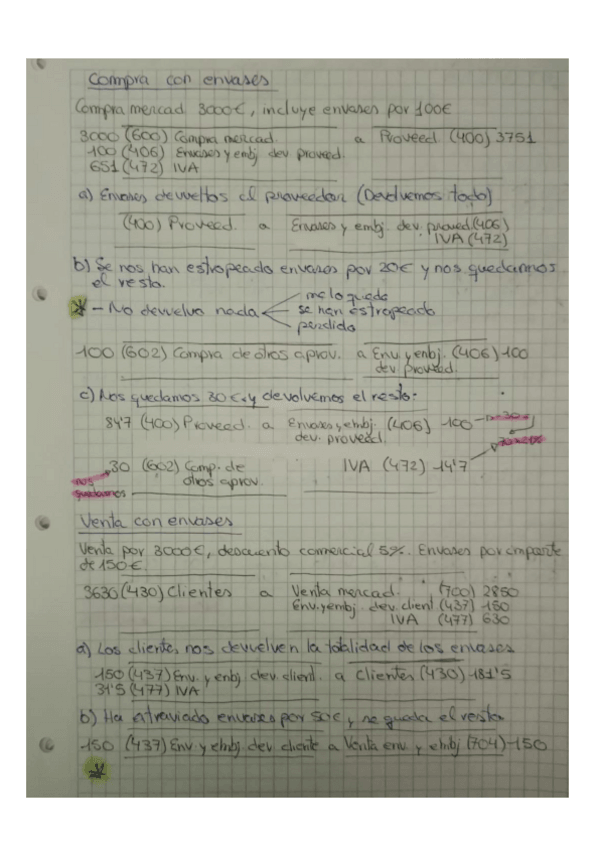 Compra con envases
Compra mercad 3000€, incluye envases por 100€
3000 (600) Compra mercad. a Proveed. (400) 3751
100 (406) Envases y embj dev proveed.
651 (472) IVA
a) Envases devueltos al proveedor (Devolvemos todo)
(400) Proveed. a Envases y embj. dev. proveed. (406)
IVA (472)
b) Se nos han estropeado envases por 20€ y nos quedamos
el resto.
* - No devuelvo nada me lo quedo
se han estropeado
perdido
100 (602) Compra de otros aprov. a Env y enbj. (406) 100
dev proveed.
c) Nos quedamos 30€ y devolvemos el resto:
84'7 (400) Proveed. a Envases y embj. (406) 100 - 30
dev. proveed.
30 (602) Comp. de IVA (472) 14'7
otros aprov.
nos
quedamos
Venta con envases
Venta por 3000€, descuento comercial 5%. Envases por importe
de 150€.
3630 (430) Clientes a Venta mercad. (700) 2850
Env. y embj. dev. client (437) 150
IVA (477) 630
a) Los clientes nos devuelven la totalidad de los envases
150 (437) Env. y enbj. dev client. a Clientes (430) 181'5
31'5 (477) IVA
b) Ha extraviado envases por 50€, y se queda el resto
150 (437) Env y embj dev cliente a Venta env. y embj (704) 150
*